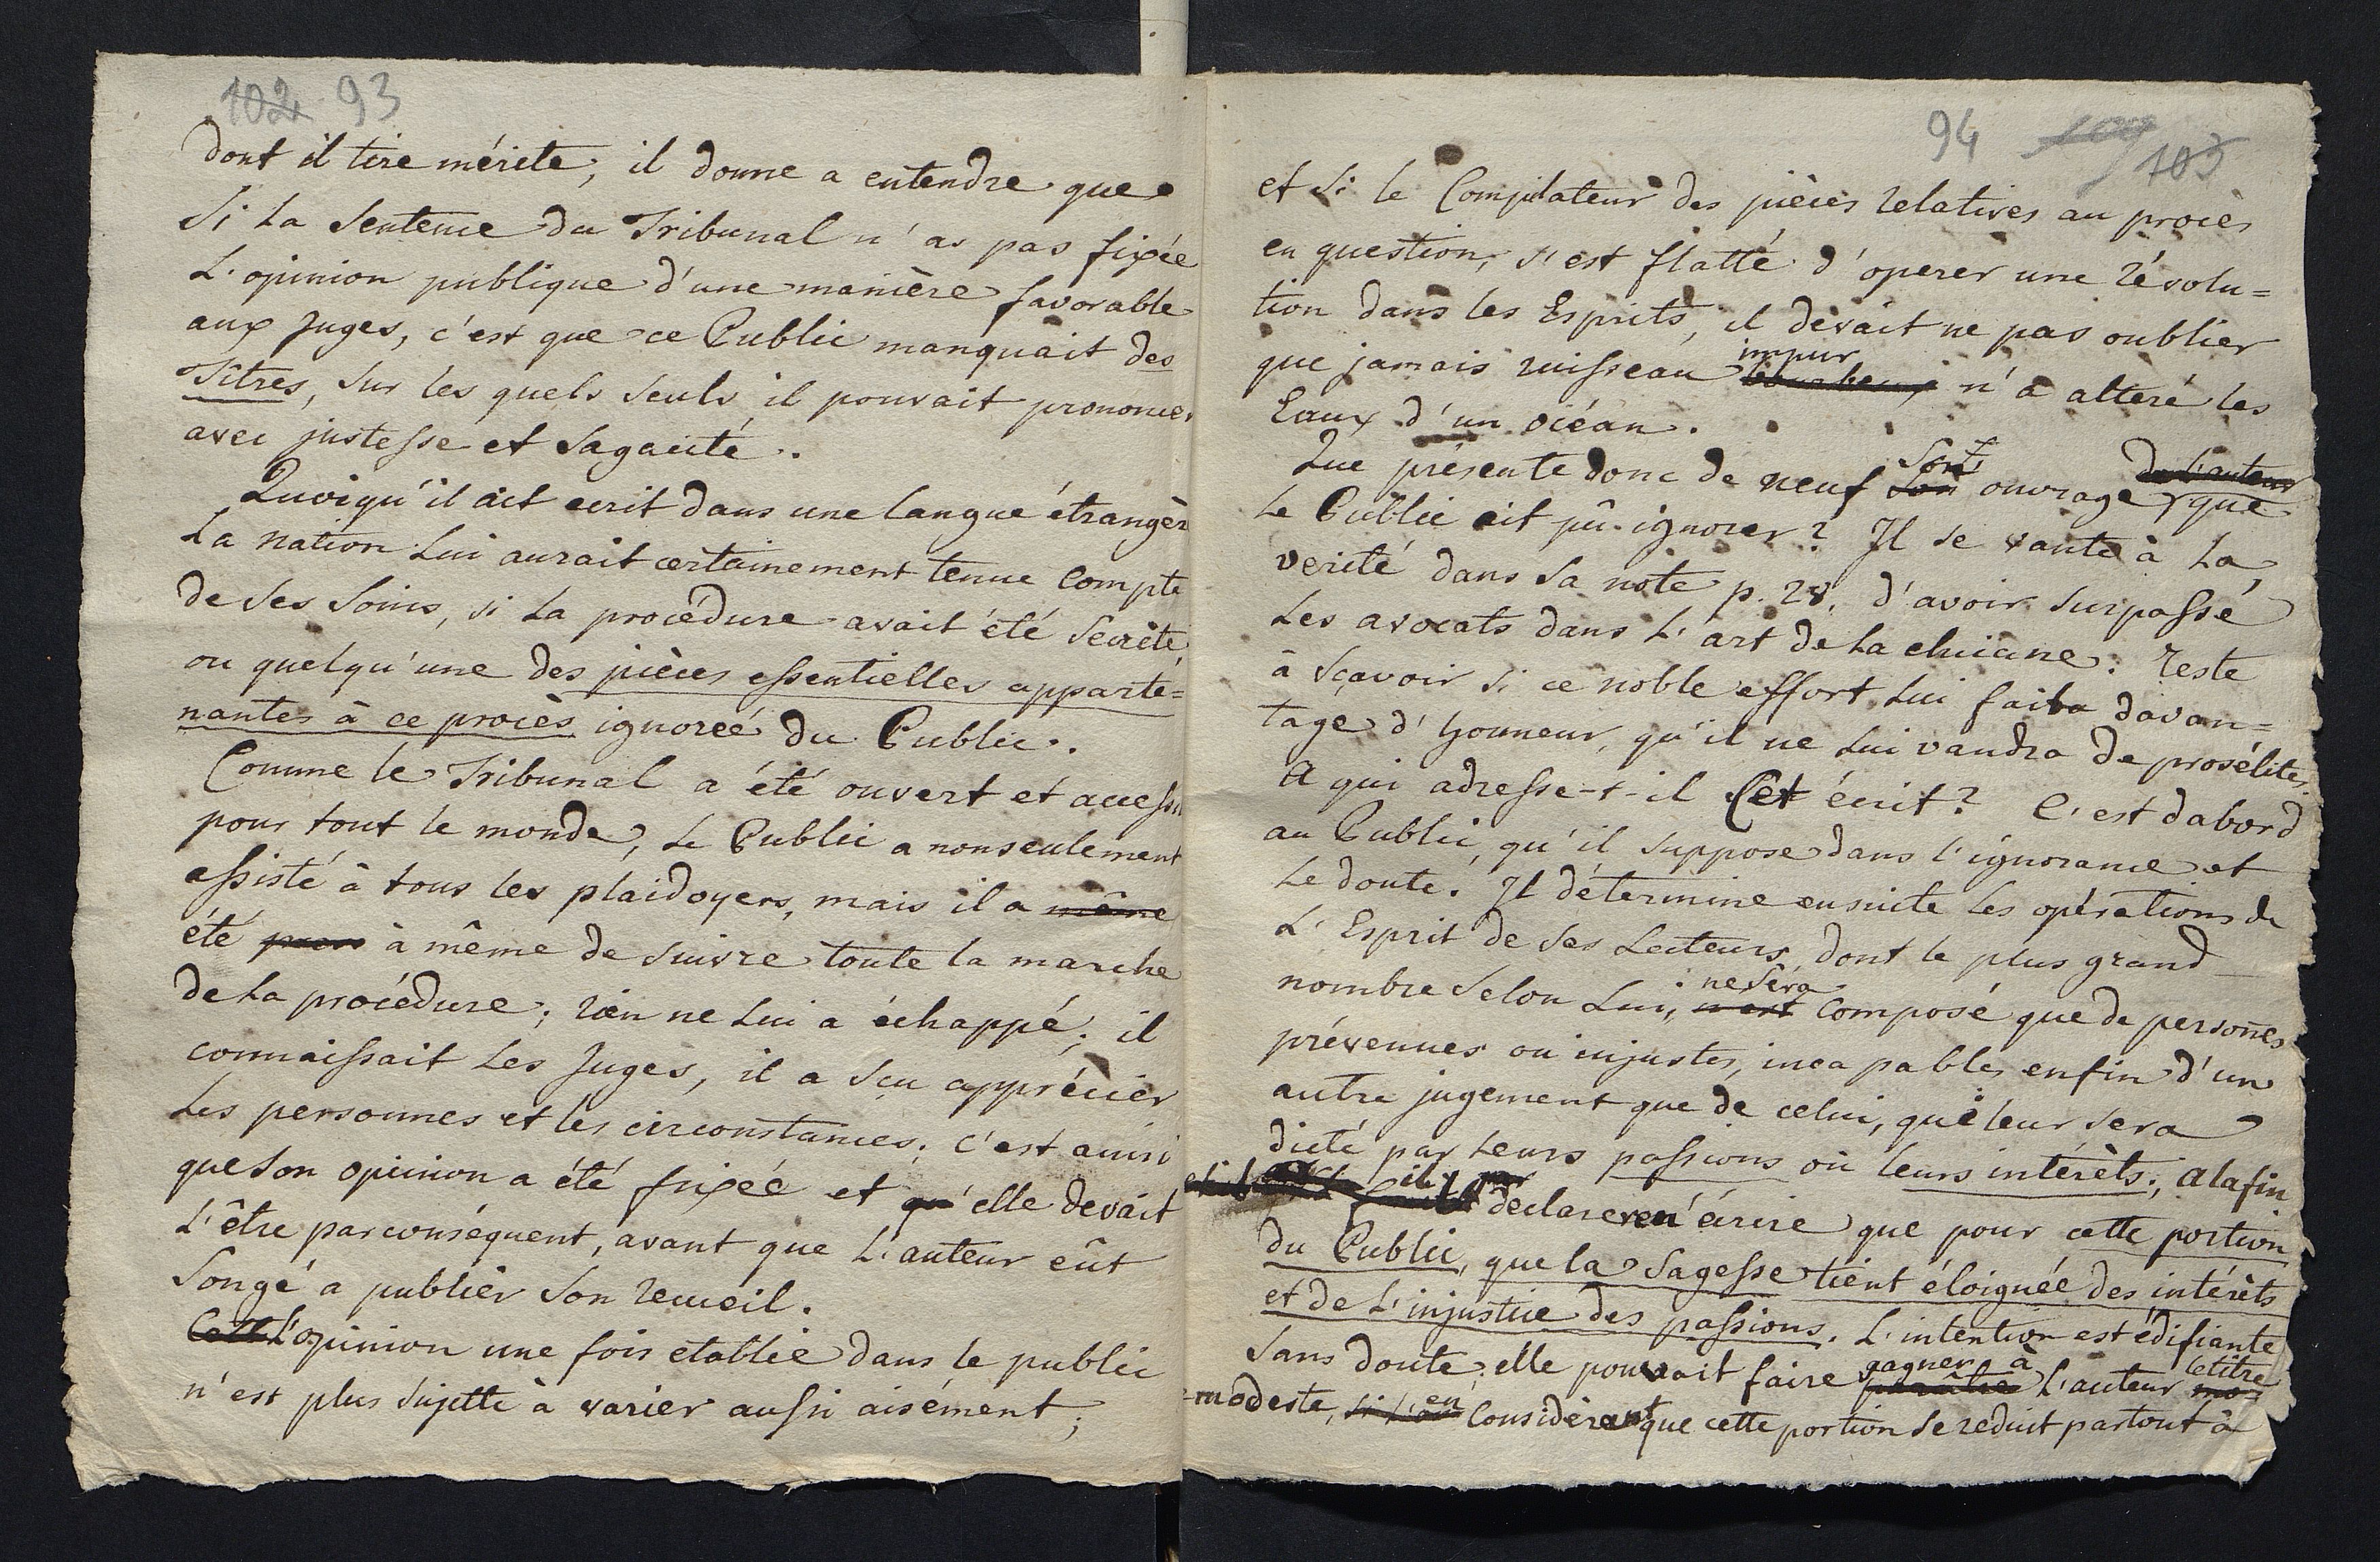 102 93
dont il tire mérite; il donne a entendre que
si la Sentence du Tribunal n'as pas fixée
L'opinion publique d'une manière favorable
aux Juges, c'est que ce Public manquait des
Titres, sur les quels seuls il pouvait prononcer
avec justesse et sagacité.
Quoiqu'il ait ecrit dans une langue étrangèr
La nation lui aurait certainement tenue compte
de ses soins, si la procédure avait été secrète,
ou quelqu'une des pièces essentielles apparte=
nantes à ce procès ignoreé du Public.
Comme le Tribunal a été ouvert et accessi
pour tout le monde, le Public a nonseulement
assisté à tous les plaidoyers, mais il a même
été à même de suivre toute la marche
de la procédure; rien ne lui a échappé; il
connaissait les Juges, il a sçu apprécier
les personnes et les circonstances; c'est ainsi
que son opinion a été fixée et qu'elle devait
L'être parconséquent, avant que L'auteur eût
songé a publièr son recueil.
Cette L'opinion une fois etablie dans le public
n'est plus sujette à varier aussi aisément;
94 103
et si le Compilateur des pièces relatives au procès
en question, s'est flatté d'operer une révolu=
tion dans les Esprits, il devait ne pas oublier
impur
que jamais ruisseau bourbeux n'a alteré les
Eaux d'un océan.
Son de l'auteur
Que présente donc de neuf Son ouvrage que
le Public ait pû ignorer? Il se vante à la
verité dans sa note p. 28, d'avoir surpassé
les avocats dans L'art de la chicane: reste
à sçavoir si ce noble effort lui faira davan=
tage d'honneur, qu'il ne lui vaudra de prosélites.
A qui adresse-t-il Cet écrit? C'est dabord
au Public, qu'il suppose dans l'ignorance et
le doute. Il détermine ensuite les opérations de
L'Esprit de ses Lecteurs, dont le plus grand
ne sera
nombre selon Lui, n'est composé que de personēs
prévenues ou injustes, incapables enfin d'un
autre jugement que de celui, qui leur sera
dicté par leurs passions où leurs intérèts; a la fin
il declare n'écrire que pour cette portion
du Public, que la Sagesse tient éloignée des intérèts
et de L'injustice des passions. L'intention est édifiante
gagner à le titre
sans doute; elle pouvait faire paraître L'auteur mo
en
modeste, si l'on Considèrant que cette portion se reduit partout à